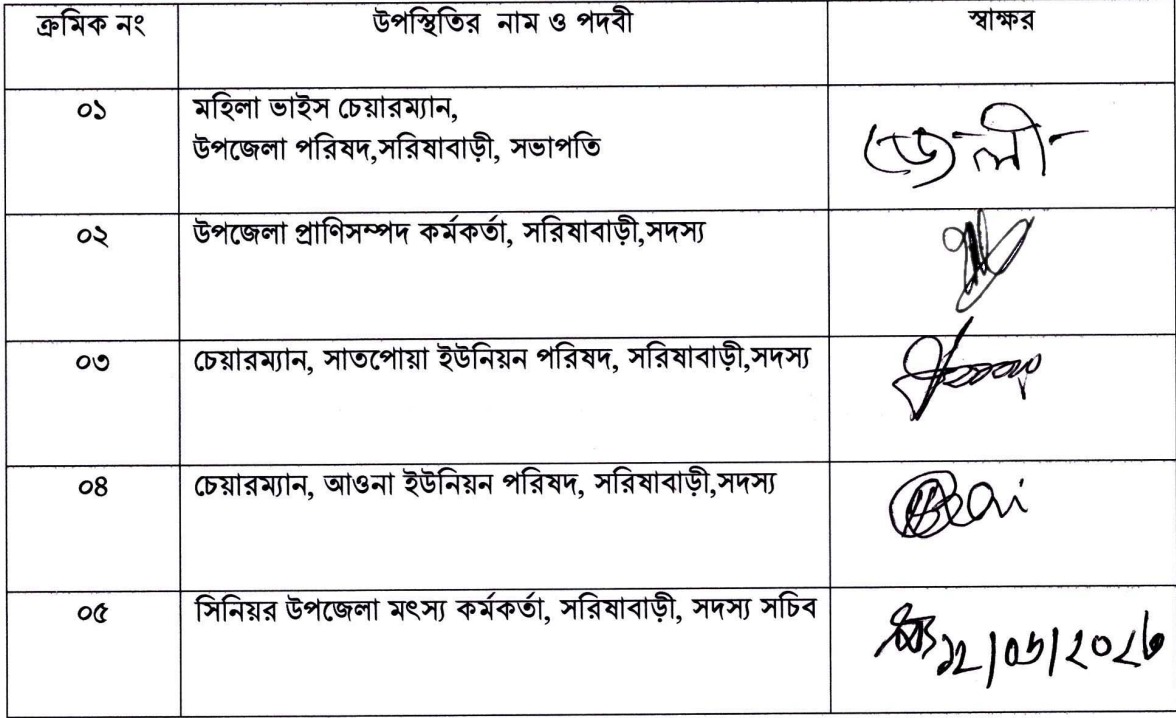 ক্রমিক নং উপস্থিতির নাম ও পদবী স্বাক্ষর
০১ মহিলা ভাইস চেয়ারম্যান,
উপজেলা পরিষদ,সরিষাবাড়ী, সভাপতি
জেলী
০২ উপজেলা প্রাণিসম্পদ কর্মকর্তা, সরিষাবাড়ী,সদস্য
০৩ চেয়ারম্যান, সাতপোয়া ইউনিয়ন পরিষদ, সরিষাবাড়ী,সদস্য
০৪ চেয়ারম্যান, আওনা ইউনিয়ন পরিষদ, সরিষাবাড়ী,সদস্য
০৫ সিনিয়র উপজেলা মৎস্য কর্মকর্তা, সরিষাবাড়ী, সদস্য সচিব